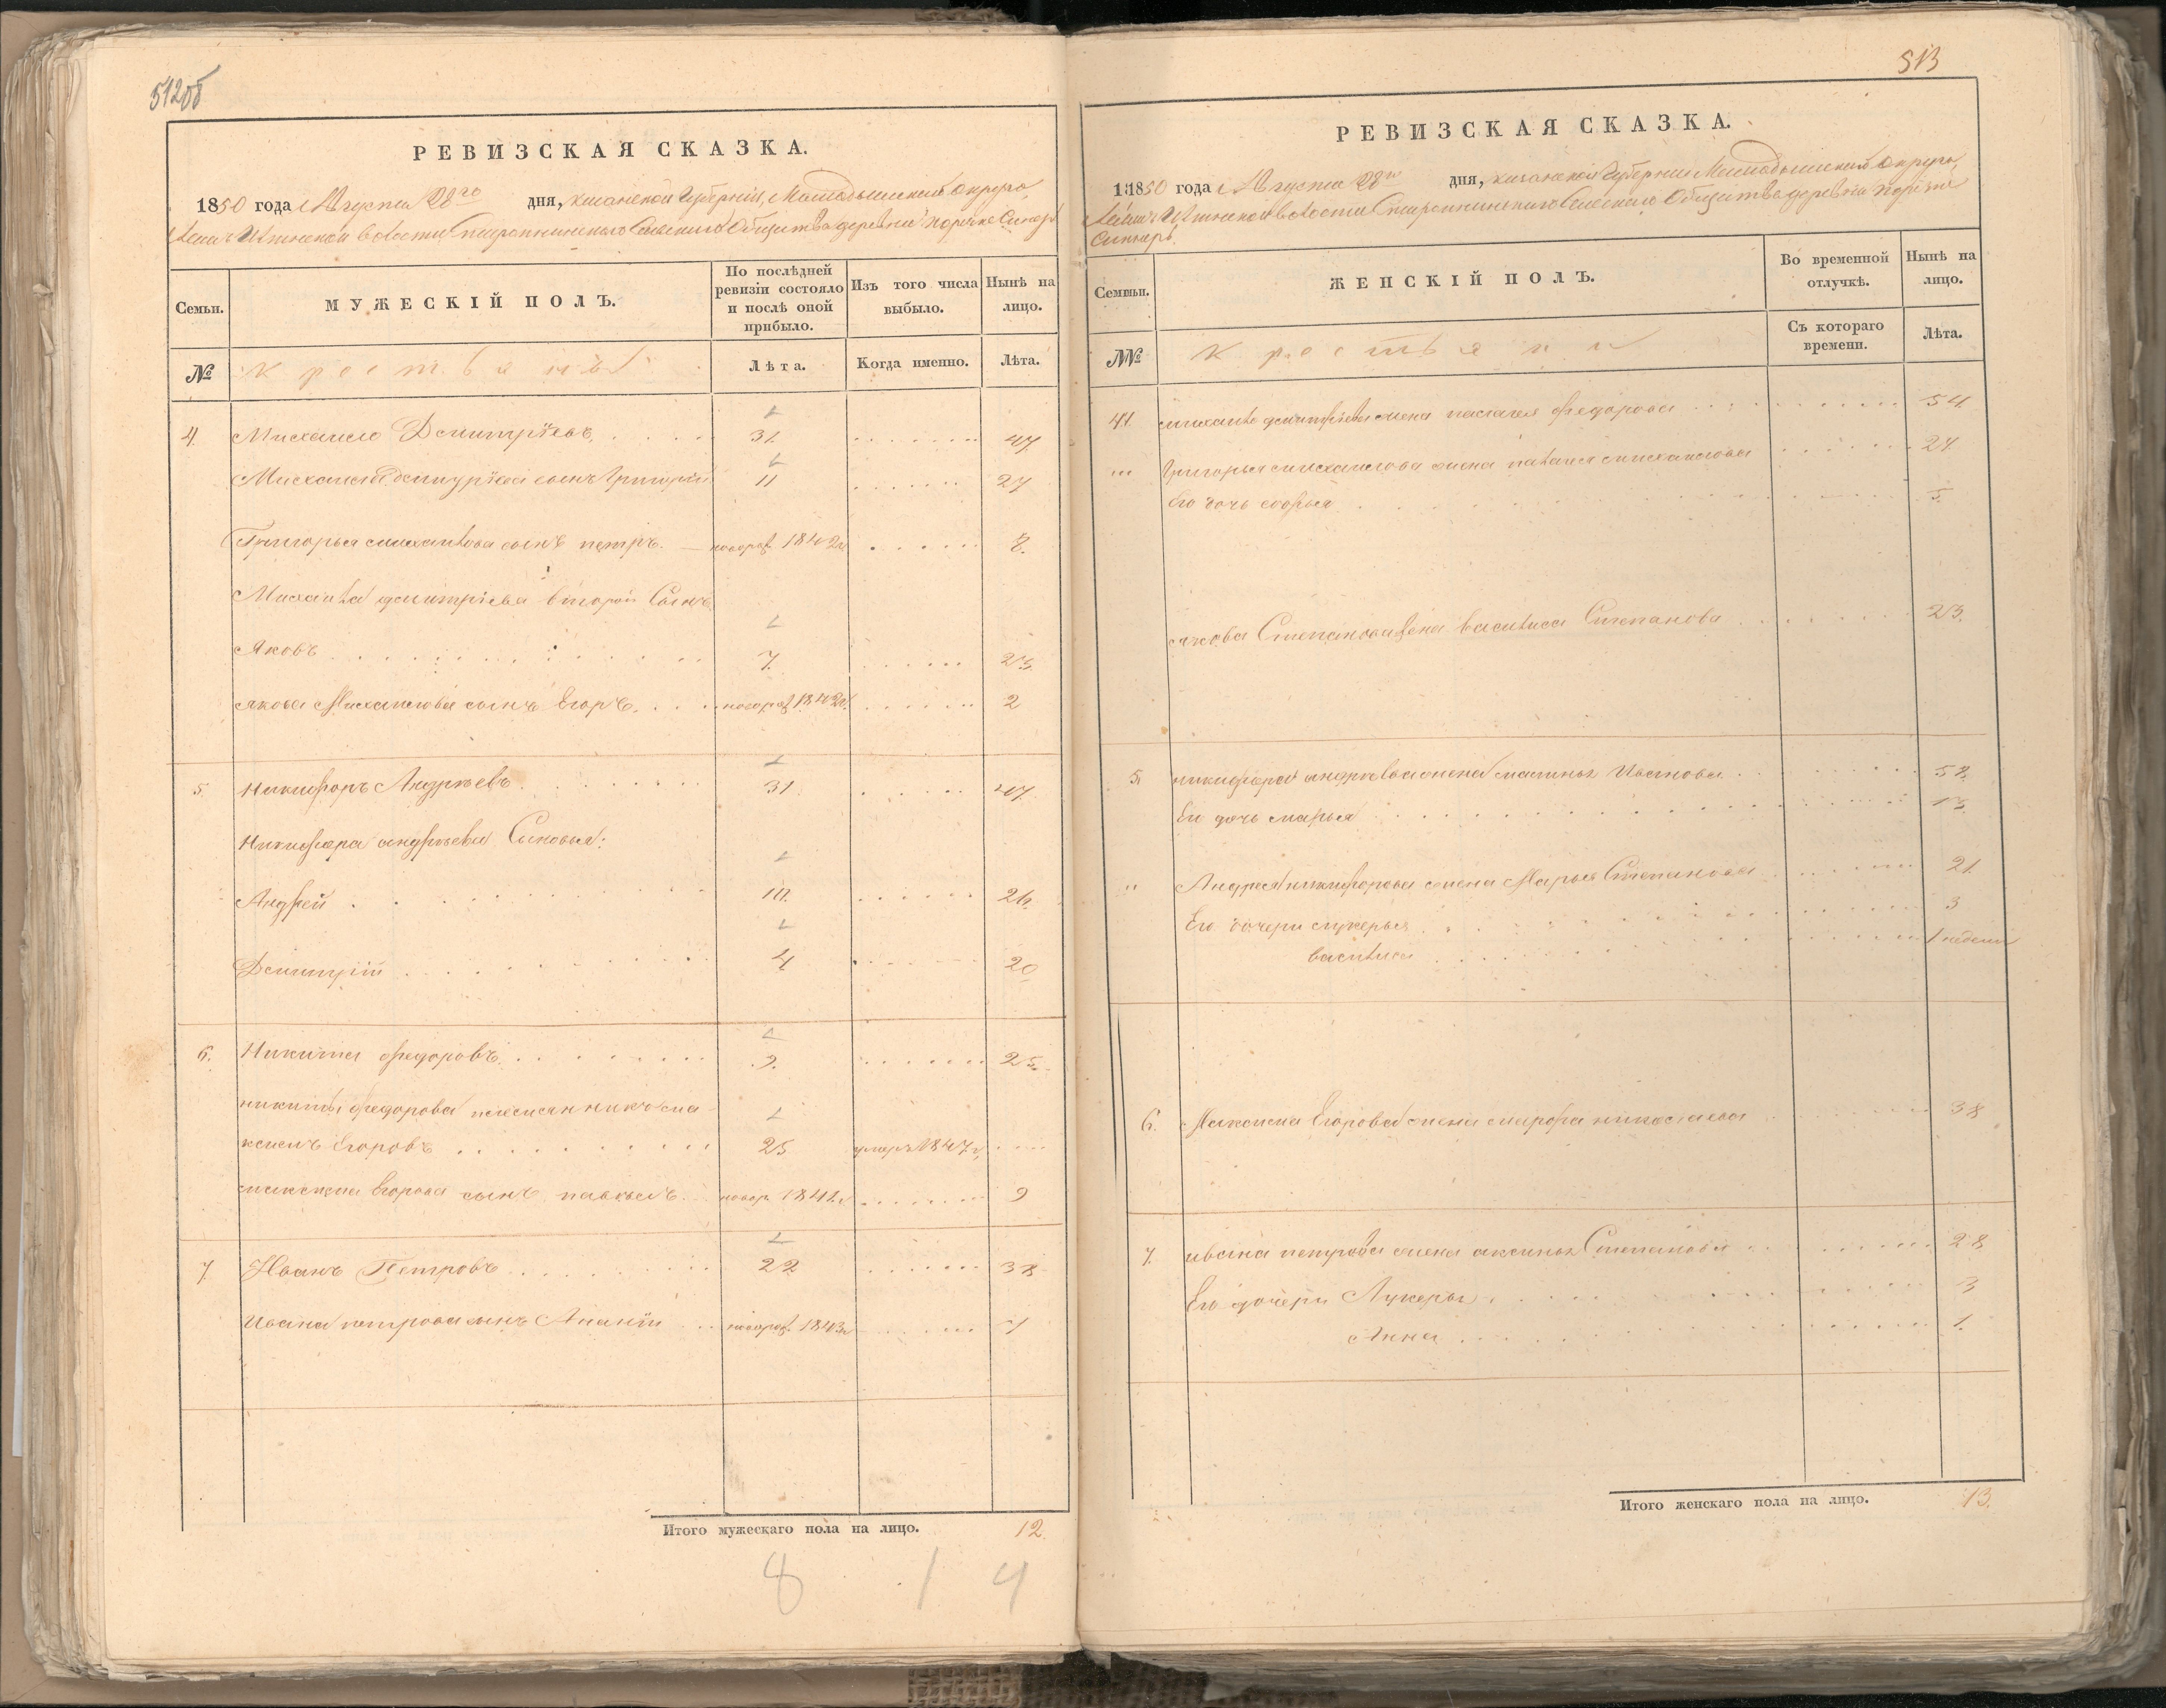 512об
РЕВИЗСКАЯ СКАЗКА.
1850 года Августа 28го дня, казанской Губерніи, Мамадышскаго Округа,
волости Сельскаго Общества деревни
Семьи.
МУЖЕСКІЙ ПОЛЪ.
По послѣдней ревизіи состояло и послѣ оной прибыло.
Изъ того числа выбыло.
Нынѣ на лицо.
№
крестьяны
Лѣта.
Когда именно.
Лѣта.
4. Михаило Дмитріевъ 31. 47.
Михаила Дмитріева сынъ Григорій 11 27
Григорья михайлова сынъ петръ. новорож 1842г 8.
Михаила дмитріева второй Сынъ
Яковъ 7. 23.
якова Михайлова сынъ Егоръ новорож 2
5. Никифоръ Андреевъ 31 47.
Никифора андреева Сыновья:
Андрей 10. 26.
Дмитрій 4 20
6. Никита федоровъ 9. 25.
никиты федорова племянникъ ма
ксимъ Егоровъ 25 умеръ 1847г,
максима Егорова сынъ павелъ новор. 1841г 9
7. Иванъ Петровъ 22 38
Ивана петрова сынъ Ананій новорож. 1
Итого мужескаго пола на лицо. 12.
8 1 4
513
РЕВИЗСКАЯ СКАЗКА.
1850 года Августа 28го дня, казанской Губерніи Мамадышскаго Округа,
волости Сельскаго Общества деревни
Семьи.
ЖЕНСКІЙ ПОЛЪ.
Во временной отлучкѣ.
Нынѣ на лицо.
№
крестьяни
Съ котораго времени.
Лѣта.
4. михаила дмитріева жена пелагея федорова 54.
Григорья михайлова жена михайлова 27.
Его дочь софья 5.
якова Степанова жена василиса Степанова 23.
5. никифора андреева жена Иванова 52.
Ея дочь марья 13.
Андрея никифорова жена Марья Степанова 21.
Его дочери лукерья 3
василиса 1 недели
6. Максима Егорова жена марфа николаева 38
7. ивана петрова жена аксинья Степанова 28
Его дочери Лукерья 3
Анна 1.
Итого женскаго пола на лицо. 13.